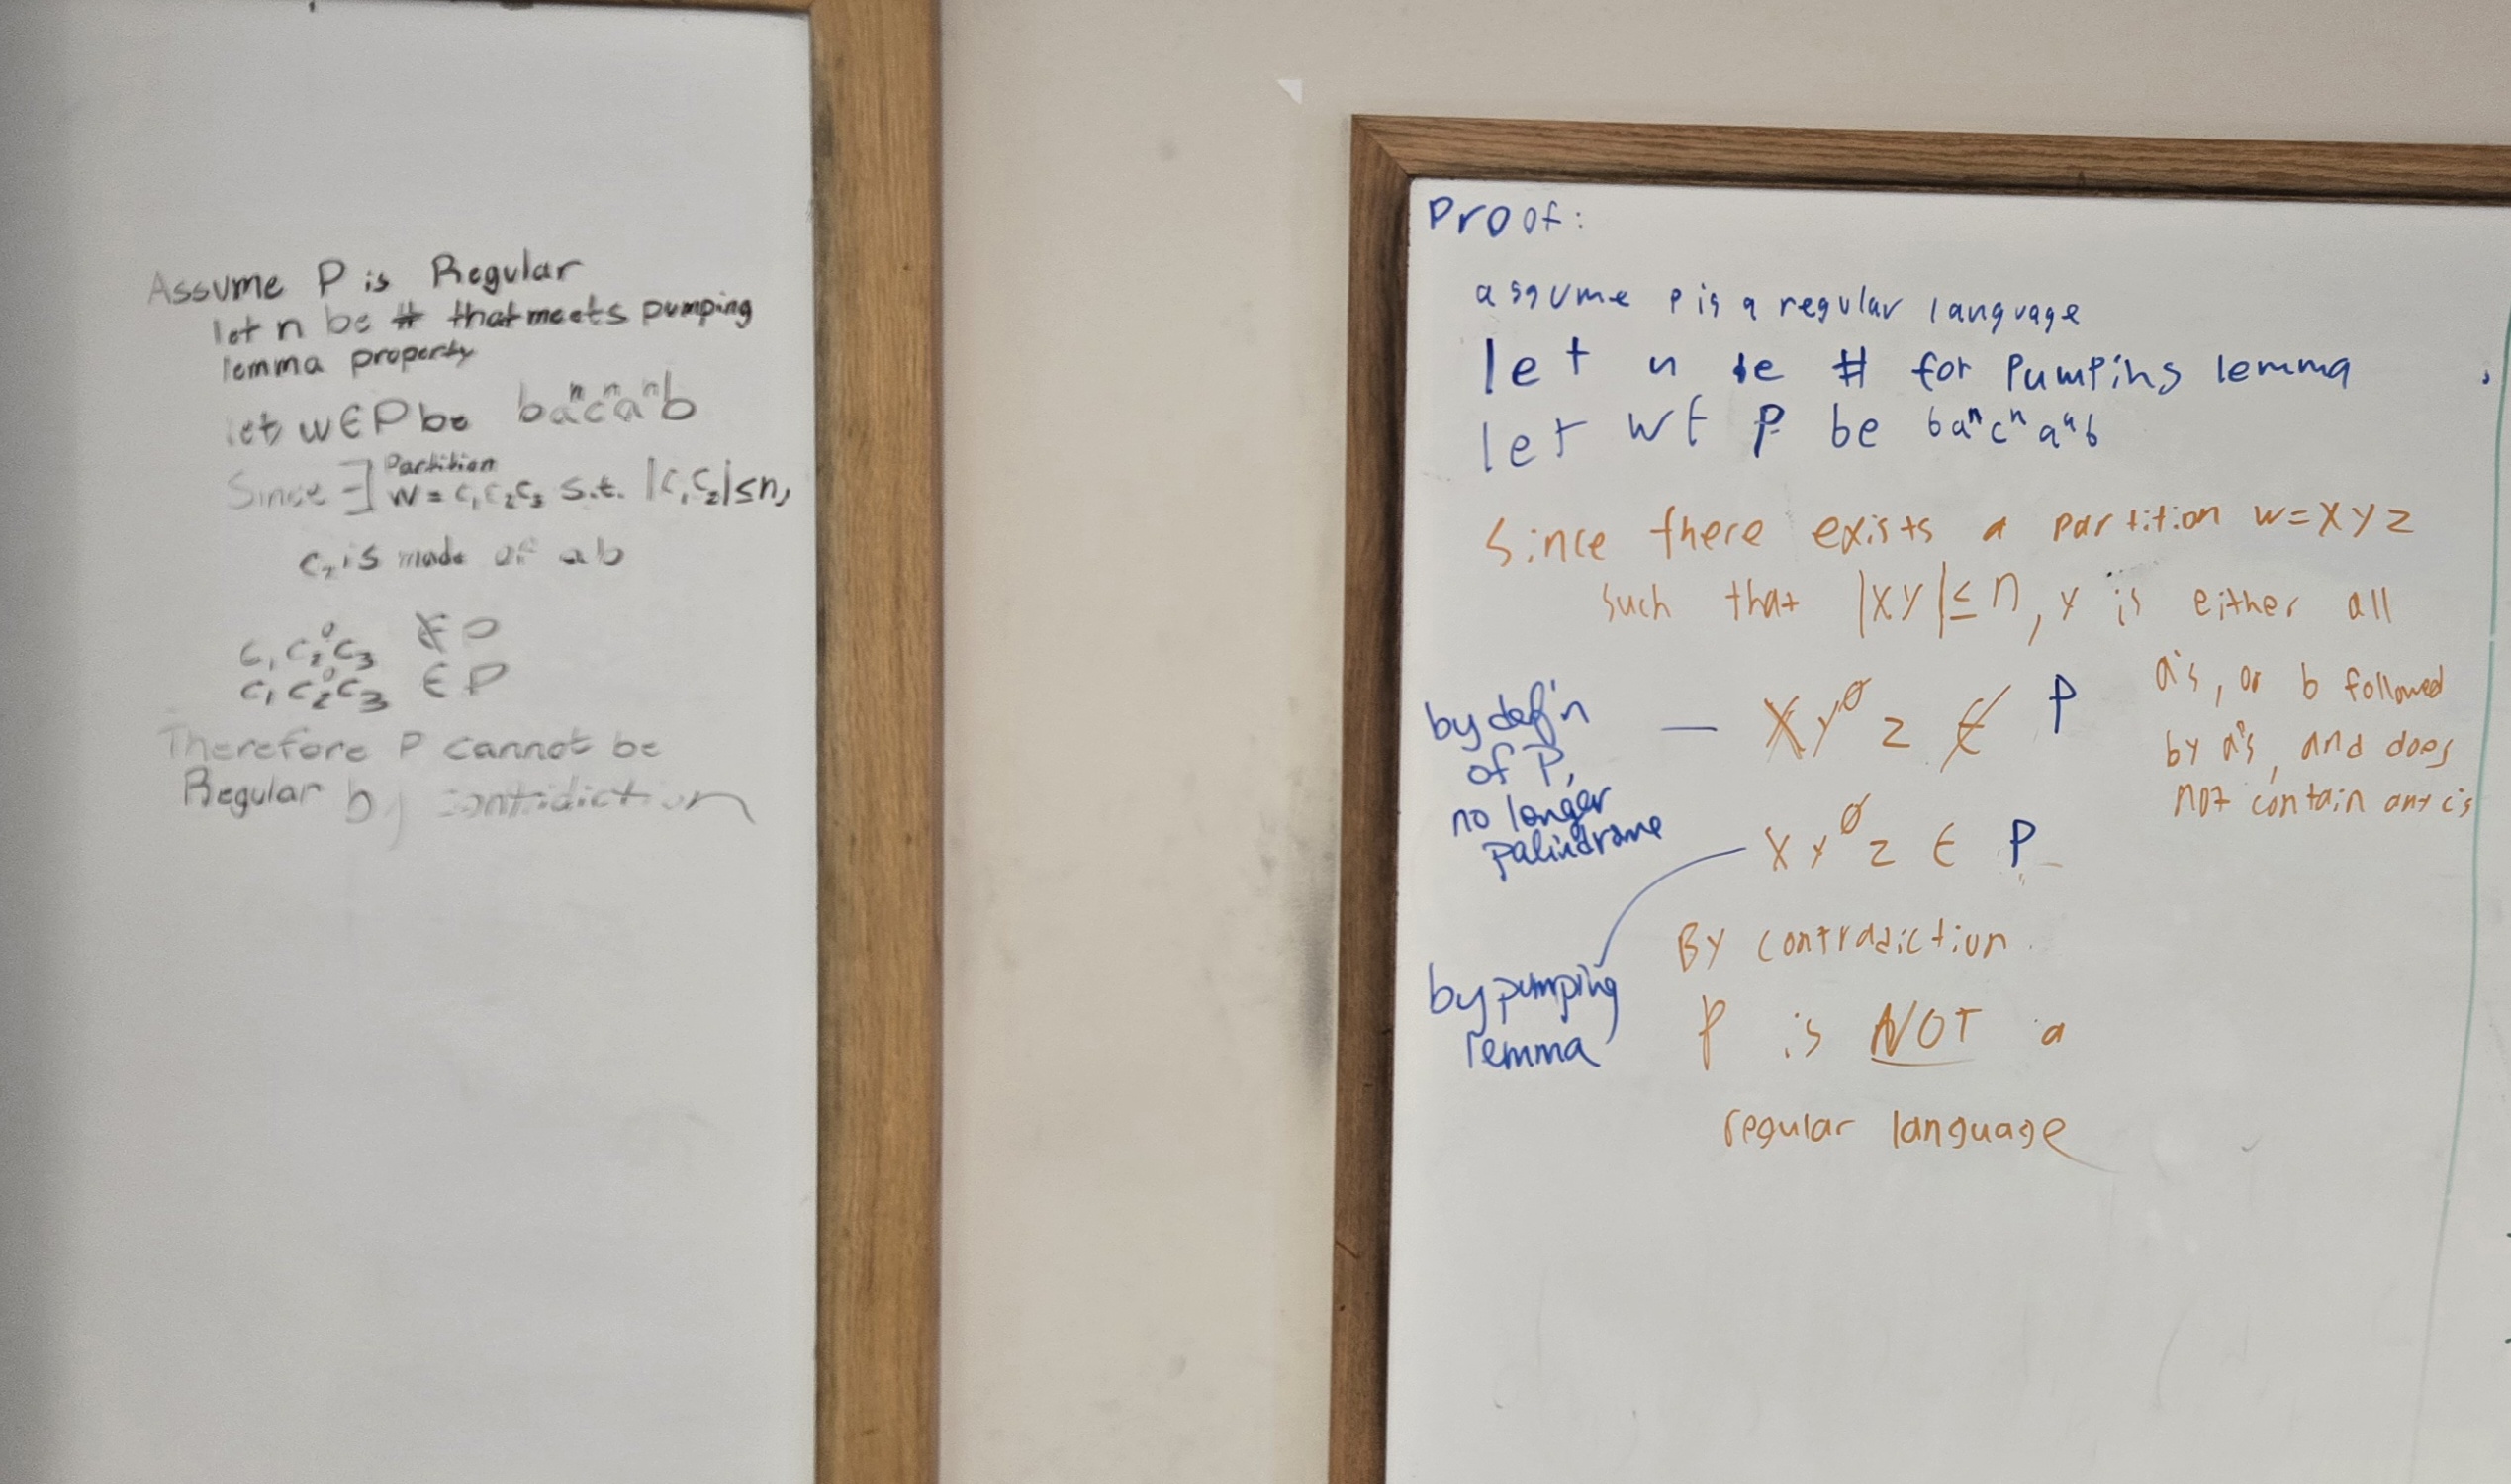 Assume P is Regular
let n be # that meets pumping
lemma property
let w∈P be baⁿcⁿaⁿb
Partition
Since ∃ w = c₁c₂c₃ s.t. |c₁c₂|≤n,
c₂ is made of ab
c₁c₂⁰c₃ ∉ P
c₁c₂⁰c₃ ∈ P
Therefore P cannot be
Regular by contridiction
Proof:
assume P is a regular language
let n be # for Pumping lemma
let w∈ P be baⁿcⁿaⁿb
Since there exists a partition w=xyz
such that |xy|≤n, y is either all
a's, or b followed
by a's, and does
not contain any c's
by def'n
of P,
no longer
palindrome
— xy⁰z ∉ P
xy⁰z ∈ P
by pumping
lemma
By contradiction
P is NOT a
regular language